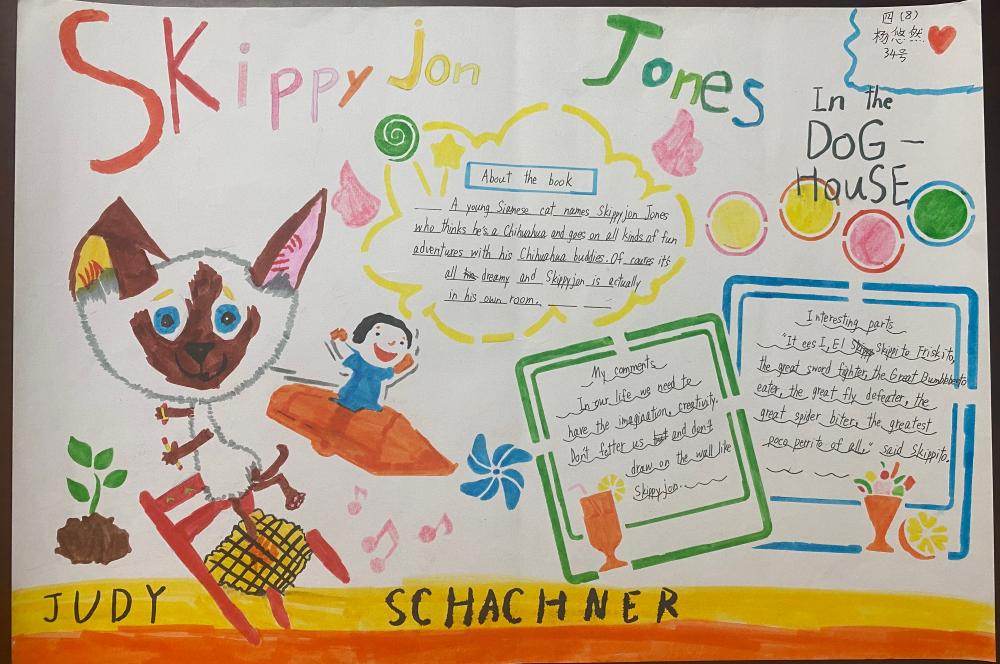 Skippy jon Jones
四(8)
杨悠然
34号
In the
DOG-
HOUSE
About the book
A young Siamese cat names Skippyjon Jones
who thinks he's a Chihuahua and goes on all kinds of fun
adventures with his Chihuahua buddies. Of caures it's
all dreamy and Skippyjon is actually
in his own room.
My comments
In our life we need to
have the imagination, creativity.
Don't fetter us and don't
draw on the wall like
Skippyjon.
Interesting parts
"It ees I, El Skippito Friskito,
the great sword fighter, the Great Bumblebeeto
eater, the great fly defeater, the
great spider biter, the greatest
poco perrito of all," said Skippito.
JUDY SCHACHNER